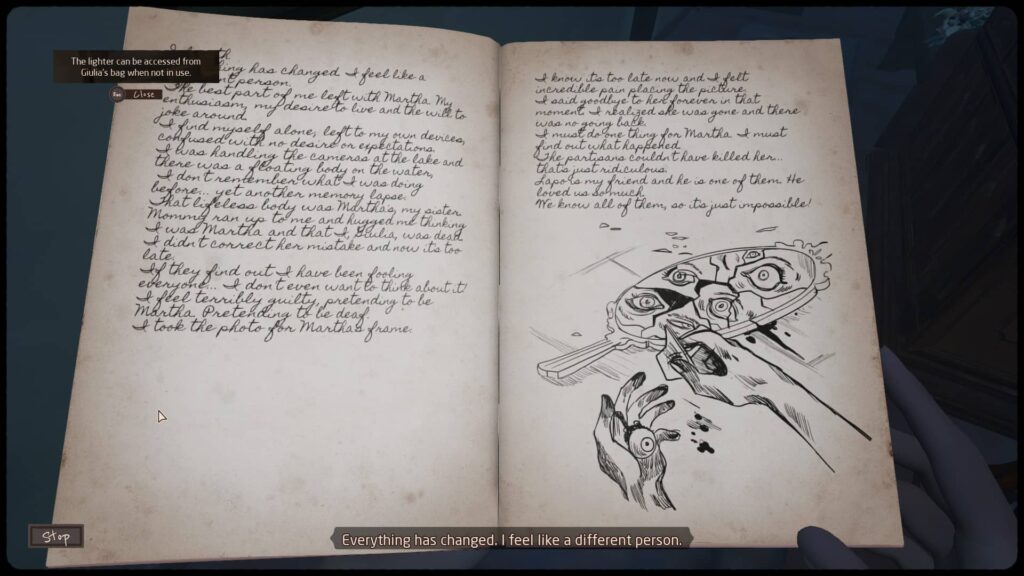 The lighter can be accessed from
Giulia's bag when not in use.
Close
has changed. I feel like a
person.
The best part of me left with Martha. My
enthusiasm, my desire to live and the will to
joke around.
I find myself alone, left to my own devices,
confused with no desire or expectations.
I was handling the cameras at the lake and
there was a floating body on the water,
I don't remember what I was doing
before... yet another memory lapse.
That lifeless body was Martha's, my sister.
Mommy ran up to me and hugged me thinking
I was Martha and that I, Giulia, was dead.
I didn't correct her mistake and now its too
late.
If they find out I have been fooling
everyone... I don't even want to think about it!
I feel terribly guilty, pretending to be
Martha. Pretending to be deaf.
I took the photo for Marthas frame.
I know its too late now and I felt
incredible pain placing the picture.
I said goodbye to her forever in that
moment. I realized she was gone and there
was no going back.
I must do one thing for Martha. I must
find out what happened.
The partisans couldn't have killed her...
thats just ridiculous.
Lapo is my friend and he is one of them. He
loved us so much.
We know all of them, so its just impossible!
Stop
Everything has changed. I feel like a different person.